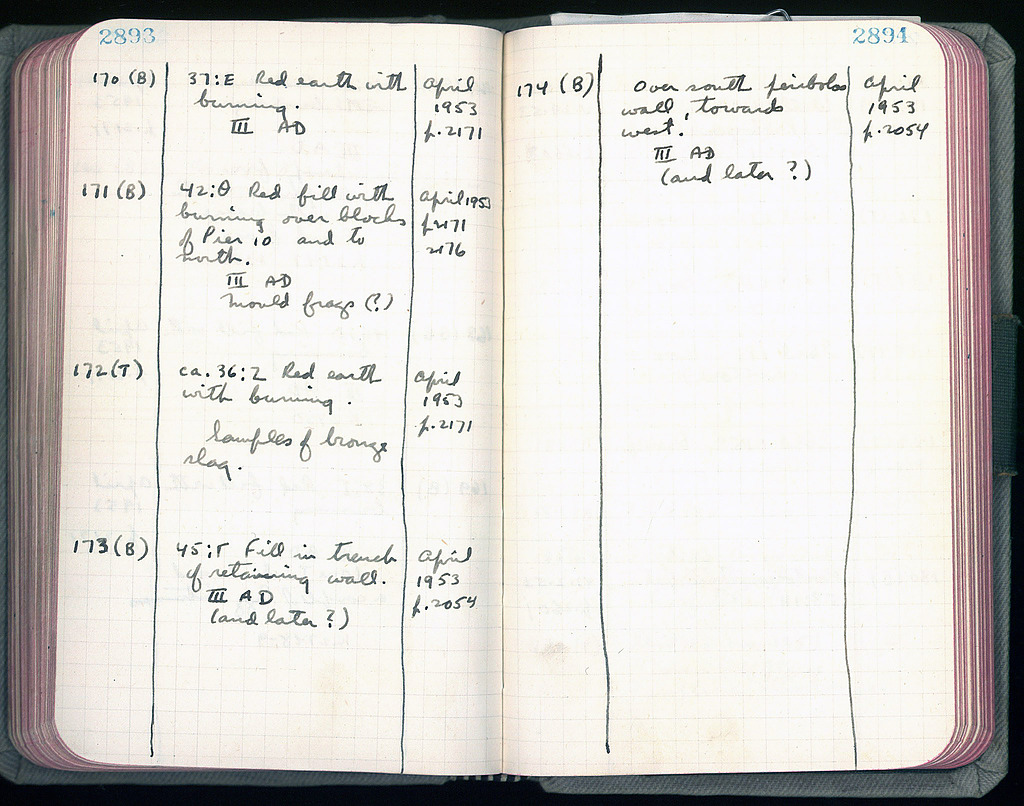 2893
170 (B) 37:E Red earth with April
burning. 1953
III AD p.2171
171 (B) 42:Θ Red fill with April 1953
burning over blocks p.2171
of Pier 10 and to 2176
north.
III AD
Mould frags (?)
172 (T) ca. 36:Z Red earth April
with burning. 1953
p.2171
Samples of bronze
slag.
173 (B) 45:Γ Fill in trench April
of retaining wall. 1953
III AD p.2054
(and later ?)
2894
174 (B) Over south peribolos April
wall, towards 1953
west. p.2054
III AD
(and later ?)